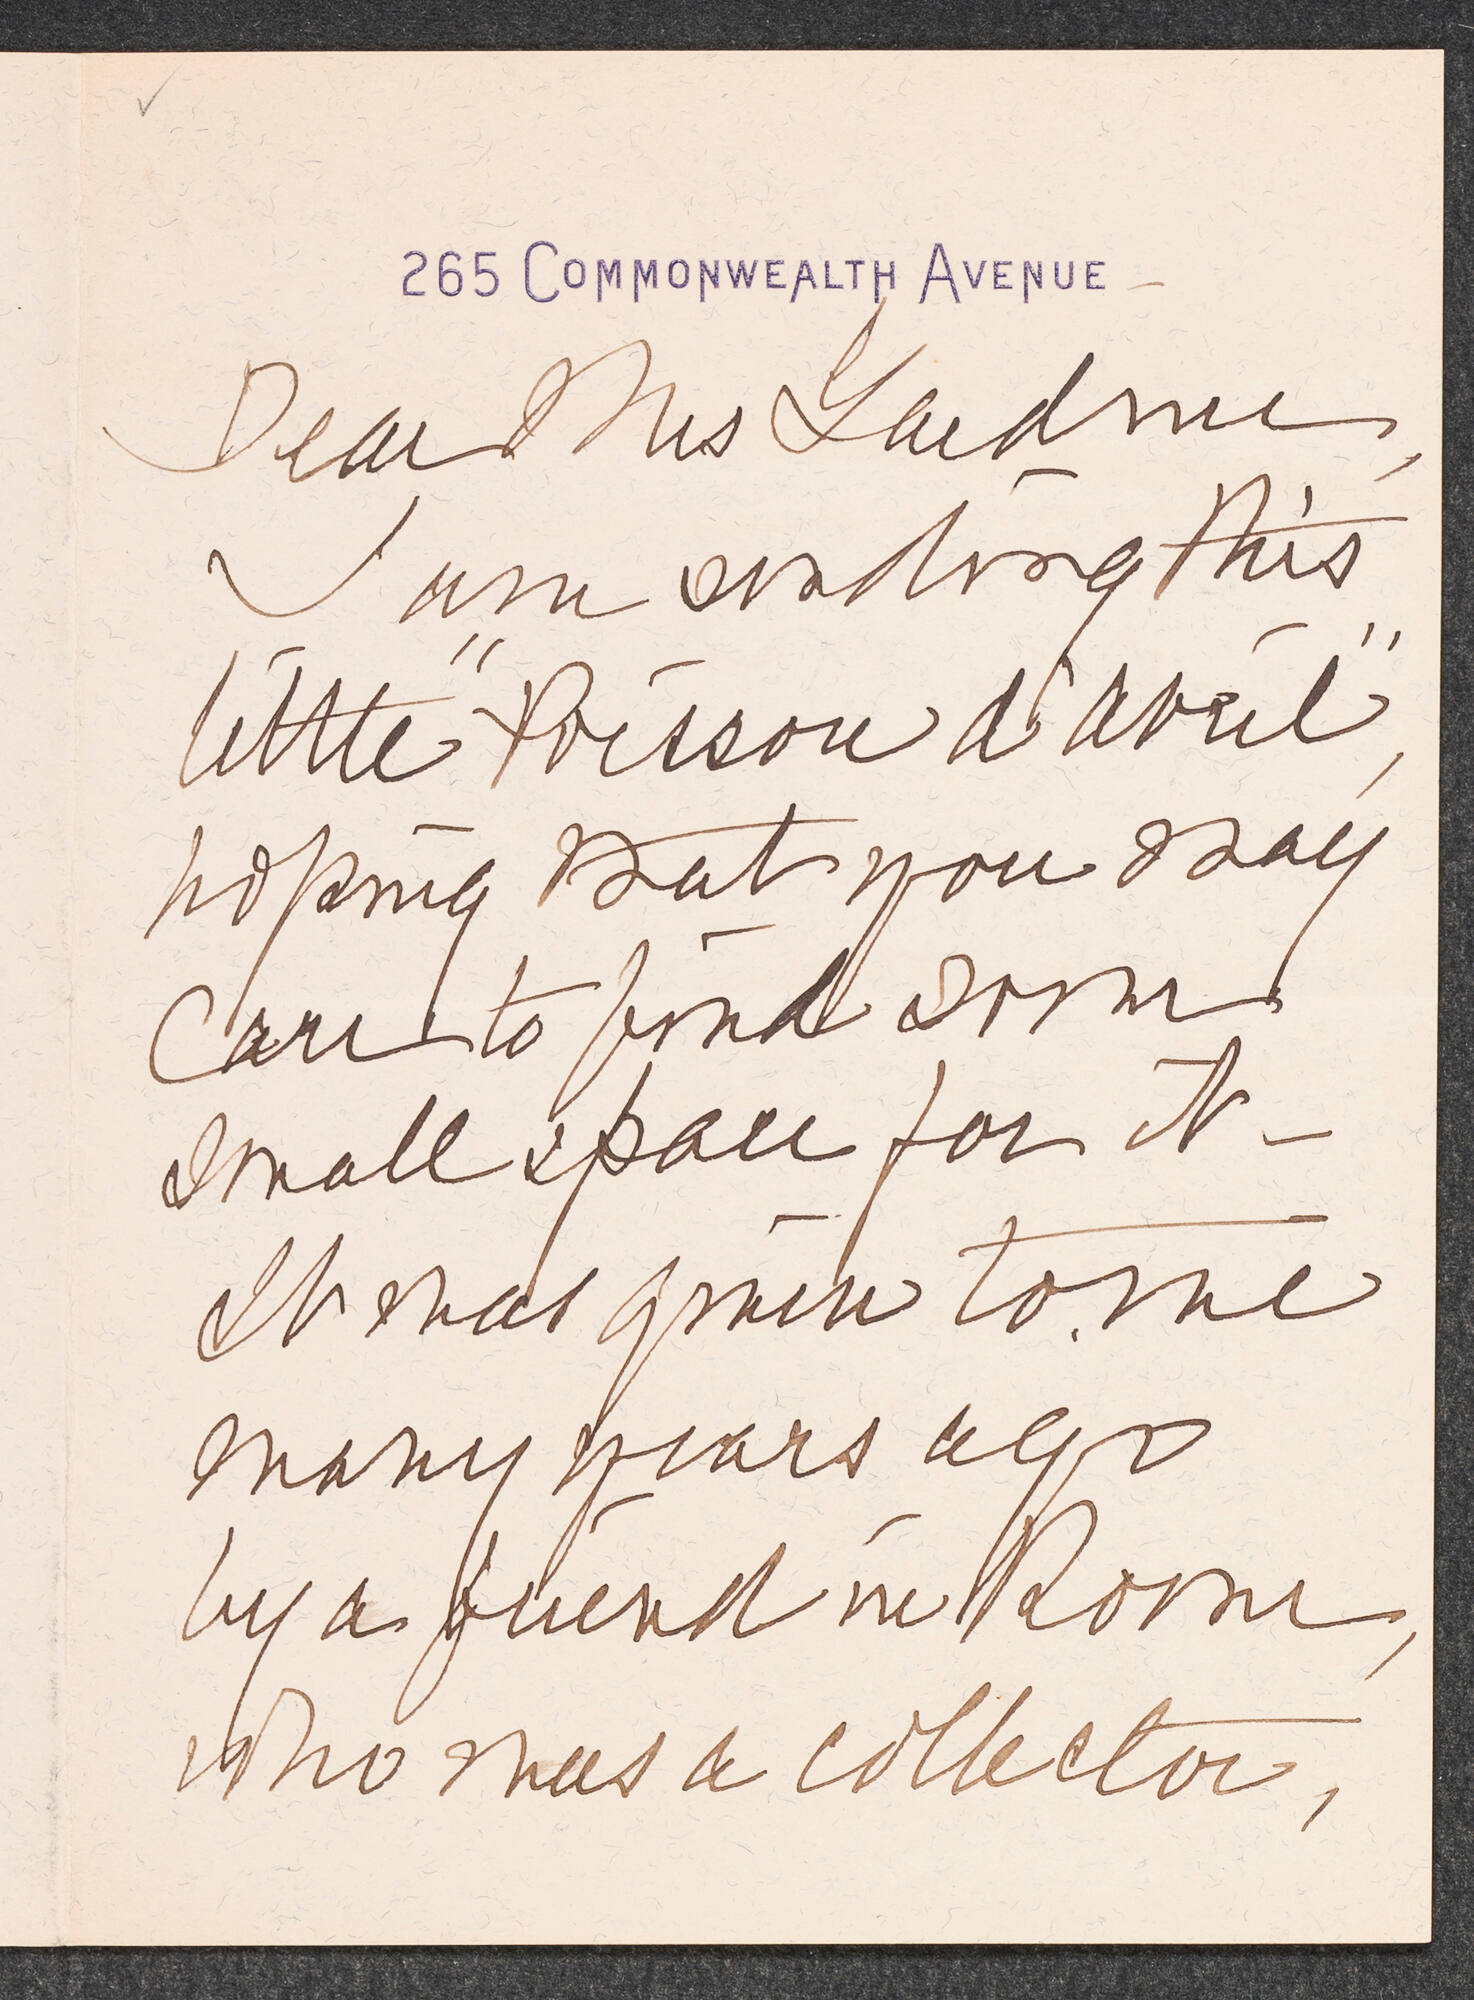 265 COMMONWEALTH AVENUE —
Dear Mrs Gardner,
I am sending this
little "Poisson d'avril",
hoping that you may
care to find some
small space for it —
It was given to me
many years ago
by a friend in Rome,
who was a collector,